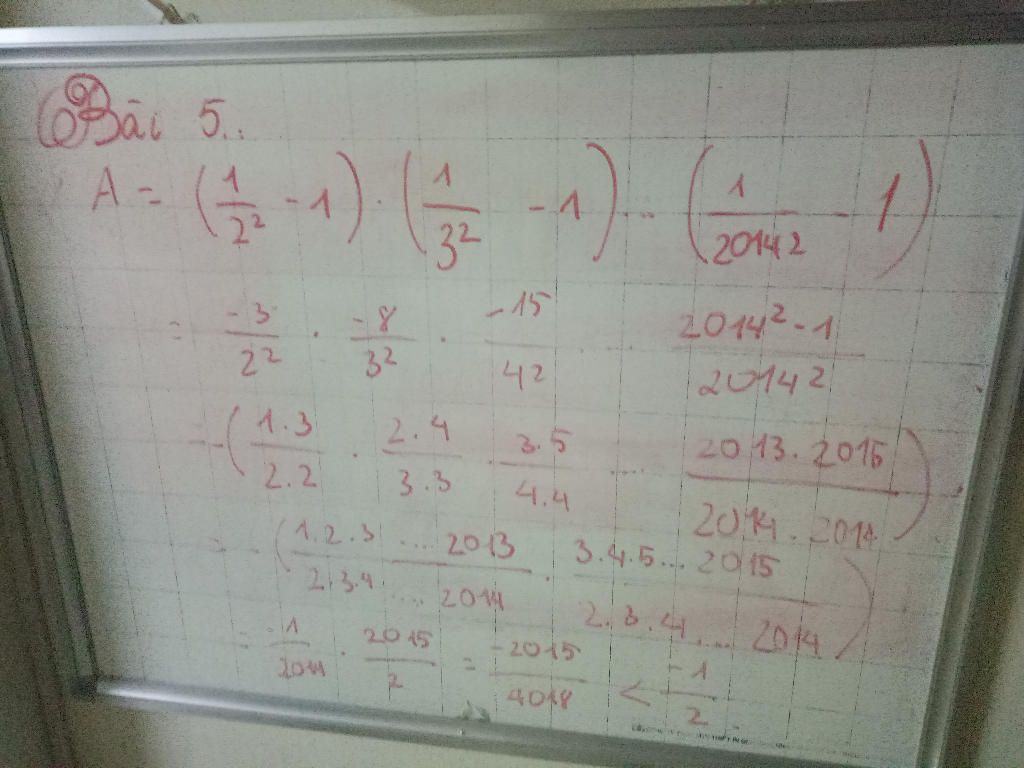 Bài 5..
A = (1/2² - 1) · (1/3² - 1) ... (1/2014² - 1)
= -3/2² · -8/3² · -15/4² ... 2014² - 1/2014²
= -(1.3/2.2 · 2.4/3.3 · 3.5/4.4 .... 2013.2015/2014.2014)
= -(1.2.3 ... 2013/2.3.4 .... 2014 · 3.4.5... 2015/2.3.4 .... 2014)
= -1/2014 · 2015/2 = -2015/4018 < -1/2